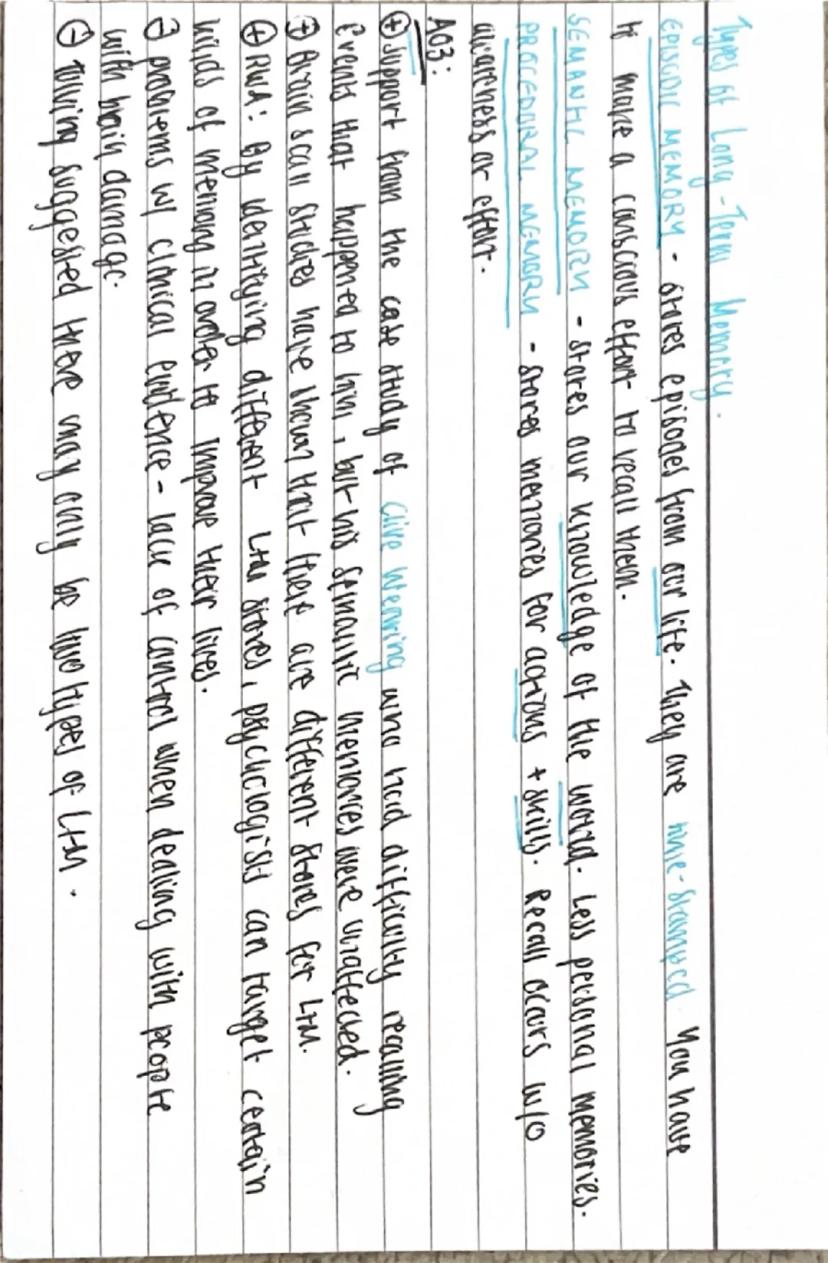 Types of Long-Term Memory.
EPISODIC MEMORY - stores episodes from our life. They are time-stamped you have
to make a conscious effort to recall them.
SEMANTIC MEMORY - stores our knowledge of the world. Less personal memories.
PROCEDURAL MEMORY - stores memories for actions + skills. Recall occurs w/o
awareness or effort.
AO3:
⊕ support from the case study of Clive Wearing who had difficulty recalling
events that happened to him, but his semantic memories were unaffected.
⊕ Brain scan studies have shown that there are different stores for LTM.
⊕ RWA: By identifying different LTM stores, psychologists can target certain
kinds of memory in order to improve their lives.
⊖ problems w/ clinical evidence - lack of control when dealing with people
with brain damage.
⊖ Tulving suggested there may only be two types of LTM.